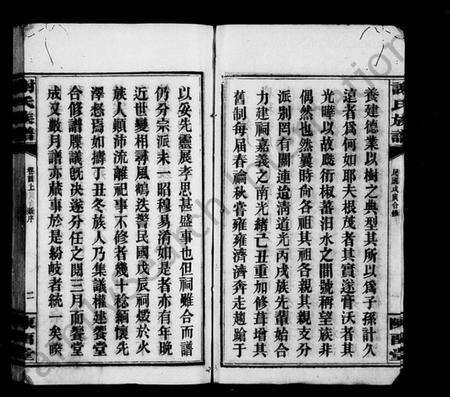 謝氏族譜
民國戊寅合修
陳留堂
養建德業以樹之典型其所以爲子孫計久
遠者爲何如耶夫根茂者其實遂膏沃者其
光曄以故慶衍椒蕃汨水之間號稱望族非
偶然也然曩時尚各祖其祖各親其親支分
派別罔有關連迨清道光丙戌族先輩始合
力建祠嘉義之南光緒乙亥重加修葺增其
舊制每届春禴秋嘗雍雍濟濟奔走趨蹌于
以妥先靈展孝思甚盛事也但祠雖合而譜
仍分宗派未一昭穆易淆如是者亦有年晚
近世變相尋風鶴迭警民國戊辰祠燬於火
族人顛沛流離祀事不修者幾十稔緬懷先
澤惄焉如擣丁丑冬族人乃集議權建饗堂
合修譜牒議旣決遂分任之閱三月而饗堂
成又數月譜亦蕆事於是紛歧者統一矣睽
謝氏族譜
卷首上
敘序
二
陳留堂